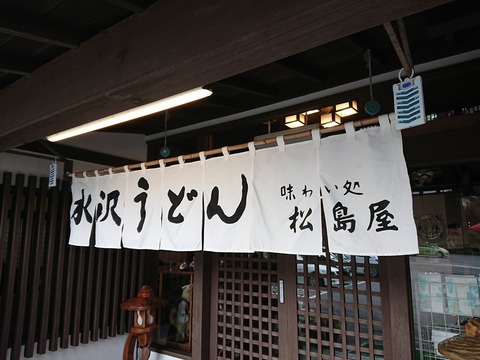 水沢うどん
味わい処
松島屋